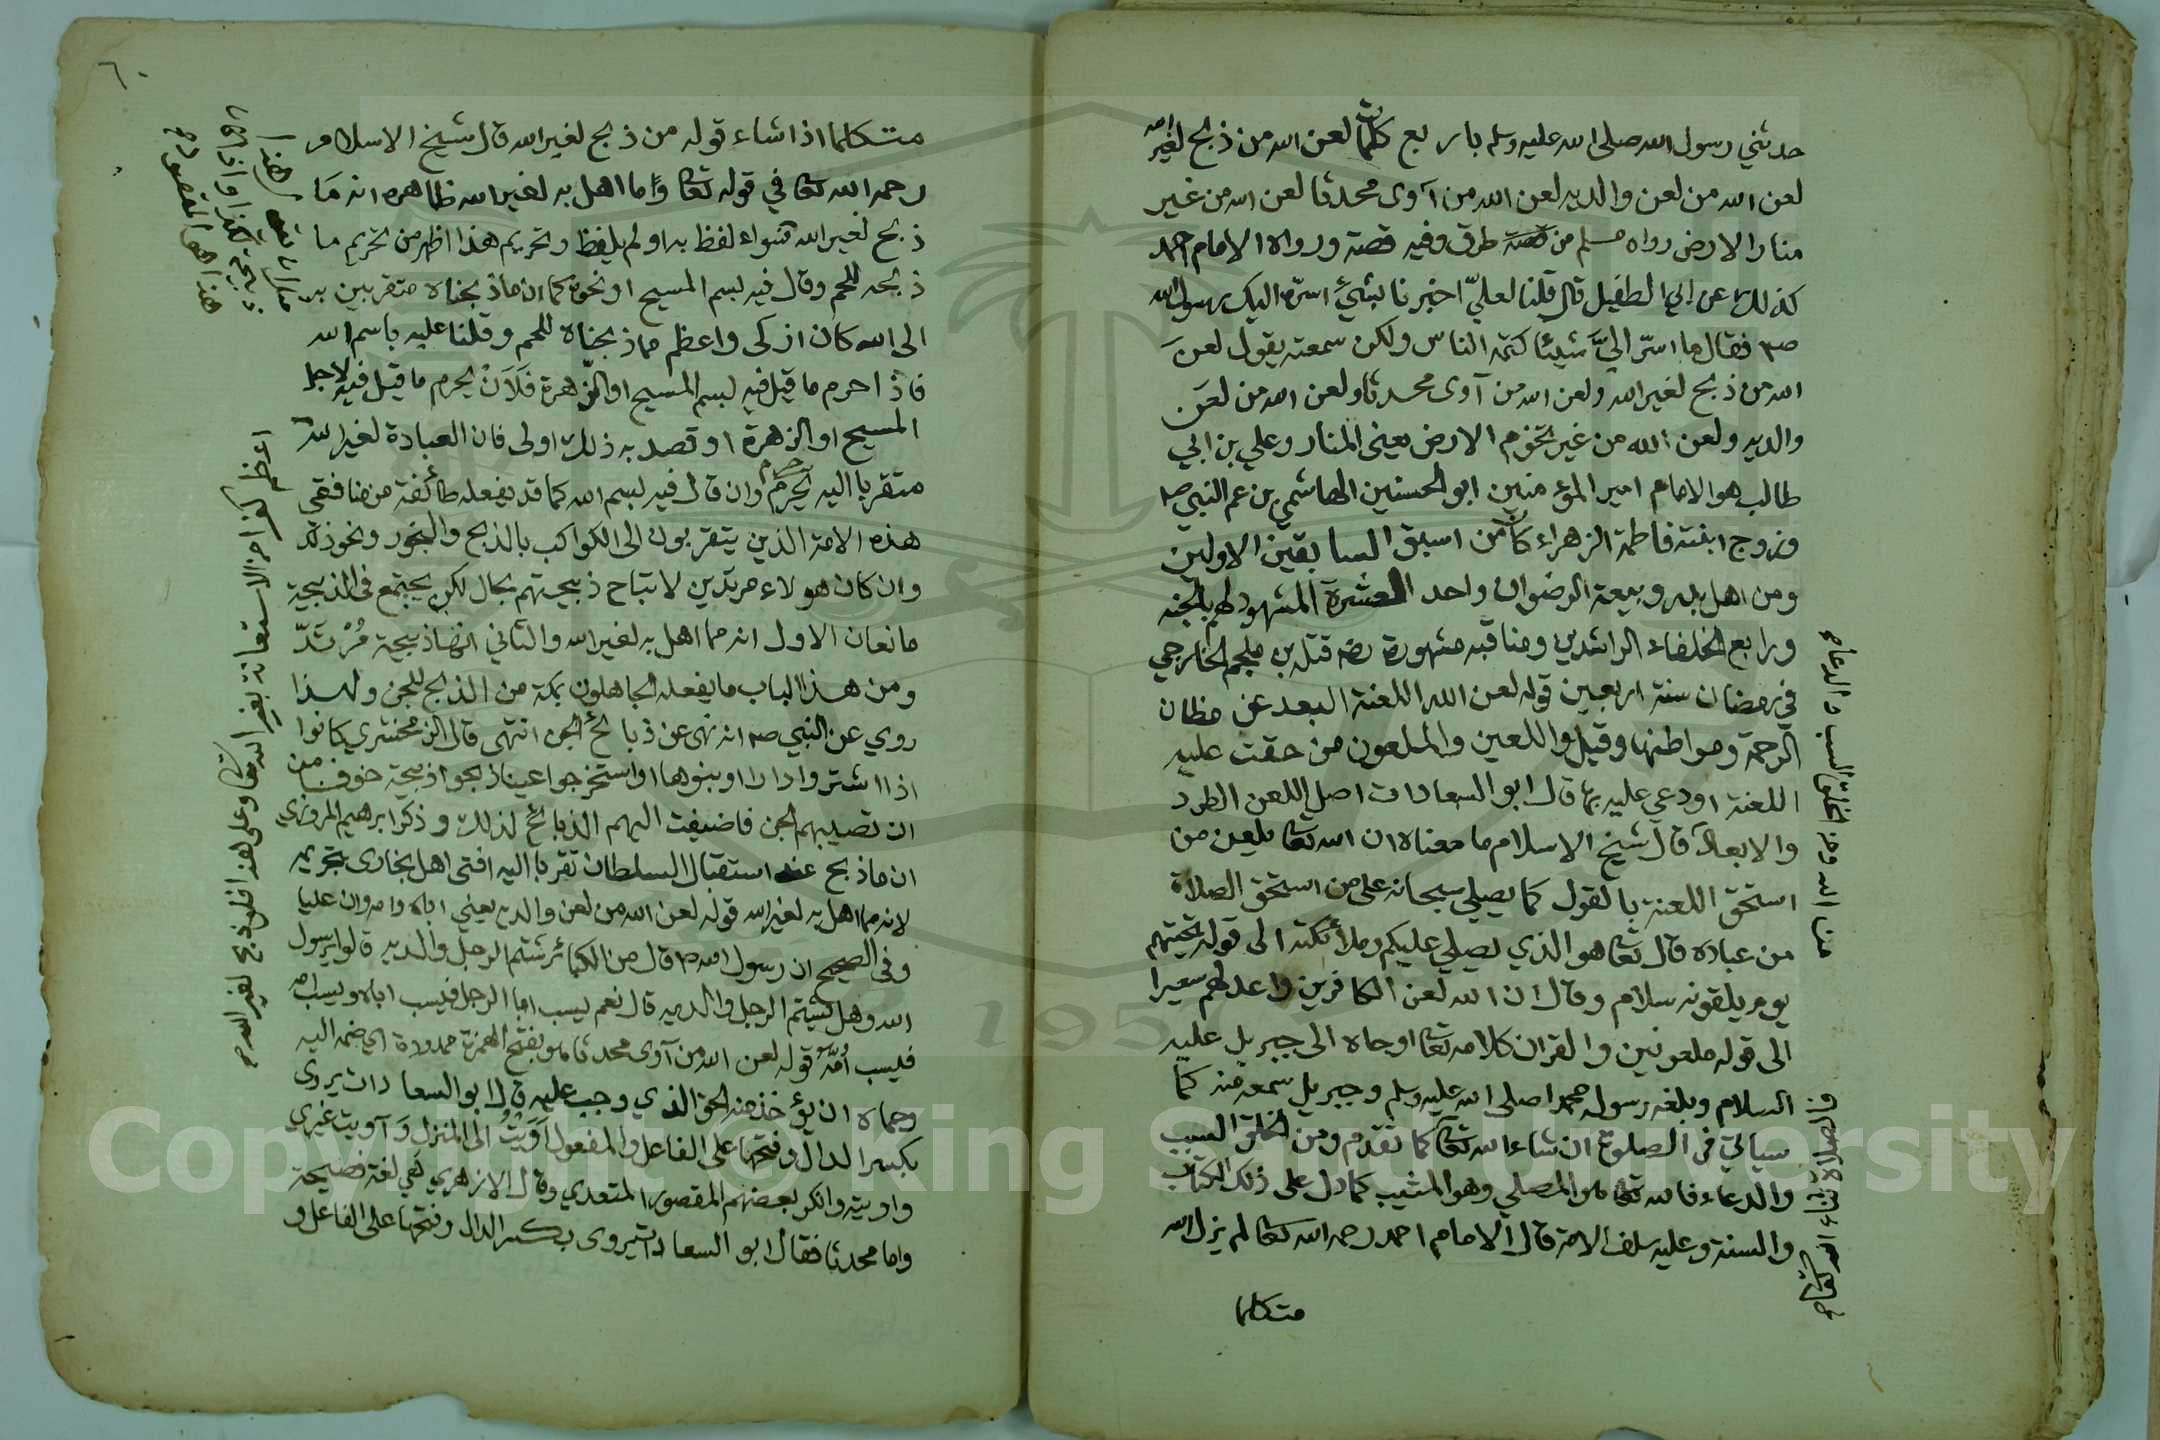 حدثني رسول الله صلى الله عليه وسلم بأربع كلمات لعن الله من ذبح لغير الله
لعن الله من لعن والديه لعن الله من آوى محدثا لعن الله من غير
منار الارض رواه مسلم من طرق وفيه قصة ورواه الامام احمد
كذلك عن ابي الطفيل قال قلنا لعليّ اخبرنا بشيئ اسرّه اليك رسول الله
صم فقال ما اسرّ اليَّ شيئا كتمه الناس ولكن سمعته يقول لعنَ
الله من ذبح لغير الله ولعن الله من آوى محدثا ولعن الله من لعَن
والديه ولعن الله من غير تخوم الارض يعني المنار وعلي بن ابي
طالب هو الامام امير المؤمنين ابو الحسنين الهاشمي بن عم النبي صم
وزوج ابنته فاطمة الزهراء كان من اسبق السابقين الاولين
ومن اهل بدر وبيعة الرضوان واحد العشرة المشهود لهم بالجنه
ورابع الخلفاء الراشدين ومناقبه مشهورة رضه قتله بن ملجم الخارجي
في رمضان سنة اربعين قوله لعن الله اللعنة البعد عن مظان
الرحمة ومواطنها وقيل واللعين والملعون من حقت عليه
اللعنة او دعي عليه بها قال ابو السعادات اصل اللعن الطرد
والابعاد قال شيخ الاسلام ما معناه ان الله تعا يلعن من
استحق اللعنة بالقول كما يصلي سبحانه على من استحق الصلاة
من عباده قال تعا هو الذي يصلي عليكم وملائكته الى قوله تحيتهم
يوم يلقونه سلام وقال ان الله لعن الكافرين واعد لهم سعيرا
الى قوله ملعونين والقران كلامه تعا اوحاه الى جبريل عليه
السلام وبلغه رسوله محمدا صلى الله عليه وسلم وجبريل سمعه منه كما
سيأتي في الصلوة ان شاء الله تعا كما تقدم ومن الخلق السبب
والدعاء فالله تعا هو المصلي وهو المثيب كما دل على ذلك الكتاب
والسنة وعليه سلف الامة قال الامام احمد رحمه الله تعا لم يزل الله
متكلما
من الله ومن الخلق السب والدعاء صح
٦٠
متكلما اذا شاء قوله من ذبح لغير الله قال شيخ الاسلام
رحمه الله تعا في قوله تعا وما اهل به لغير الله ظاهره انه مَا
ذبح لغير الله سواء لفظ به او لم يلفظ وتحريم هذا اظهر من تحريم ما
ذبحه للحم وقال فيه بسم المسيح او نحوه كما ان ما ذبحناه متقربين به
الى الله كان ازكى واعظم مما ذبحناه للحم وقلنا عليه باسم الله
فاذا حرم ما قيل فيه بسم المسيح او الزهرة فَلَاَنْ يحرم ما قيل فيه لاجل
المسيح او الزهرة او قصد به ذلك اولى فان العبادة لغير الله
متقربا اليه لحرم وان قال فيه بسم الله كما قد يفعله طائفة من منافقي
هذه الامة الذين يتقربون الى الكواكب بالذبح والبخور ونحو ذلك
وان كان هولاء مرتدين لا تباح ذبيحتهم بحال لكن يجتمع في الذبيحة
مانعان الاول انه مما اهل به لغير الله والثاني انها ذبيحة مُرْتَدّ
ومن هذا الباب ما يفعله الجاهلون بمكة من الذبح للجن ولهذا
روي عن النبي صم انه نهى عن ذبائح الجن انتهى قال الزمخشري كانوا
اذا اشتروا دارا او بنوها او استخرجوا عينا ذبحوا ذبيحة خوفا من
ان تصيبهم الجن فاضيفت اليهم الذبائح لذلك وذكر ابرهيم المروزي
ان ما ذبح عند استقبال السلطان تقربا اليه افتى اهل بخارى بتحريمه
لانه مما اهل به لغير الله قوله لعن الله من لعن والديه يعني اباه وامه وان عليا
وفي الصحيح ان رسول الله صم قال من الكبائر شتم الرجل والديه قالوا يرسول
الله وهل يشتم الرجل والديه قال نعم يسب ابا الرجل فيسب اباه ويسب امه
فيسب اُمَّه قوله لعن الله من آوى محدثا هو بفتح الهمزة ممدودة اي ضمه اليه
وحماه ان يؤخذ منه الحق الذي وجب عليه قال ابو السعادات يروى
بكسر الدال وفتحها على الفاعل والمفعول اَوَيْتُ الى المنزل وَآويت غيري
واويته وانكر بعضهم المقصور المتعدي وقال الازهري هي لغة فصيحة
واما محدثا فقال ابو السعادات يروى بكسر الدال وفتحها على الفاعل و
اعظم كفرا من الاستعانة بغير الله تعا وعلى هذا فلو ذبح لغير الله صح
Copyright © King Saud University
1957